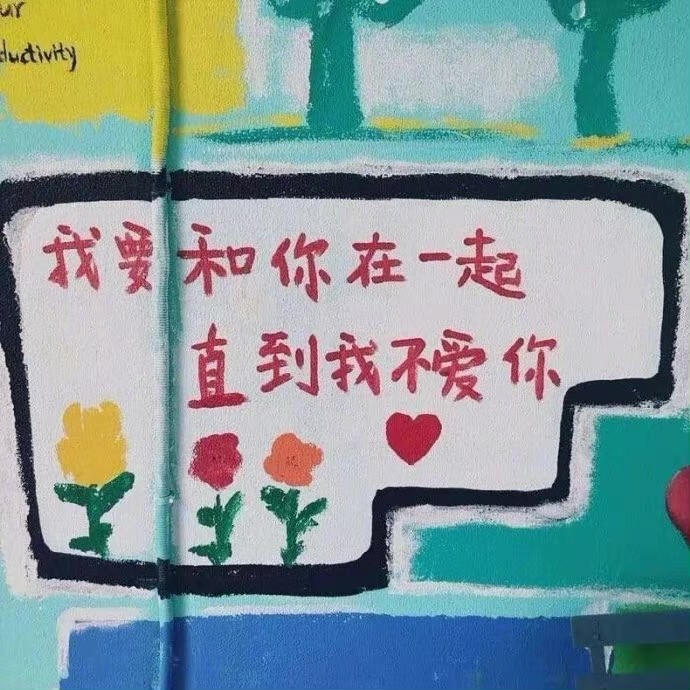 ur
ductivity
我要和你在一起
直到我不爱你